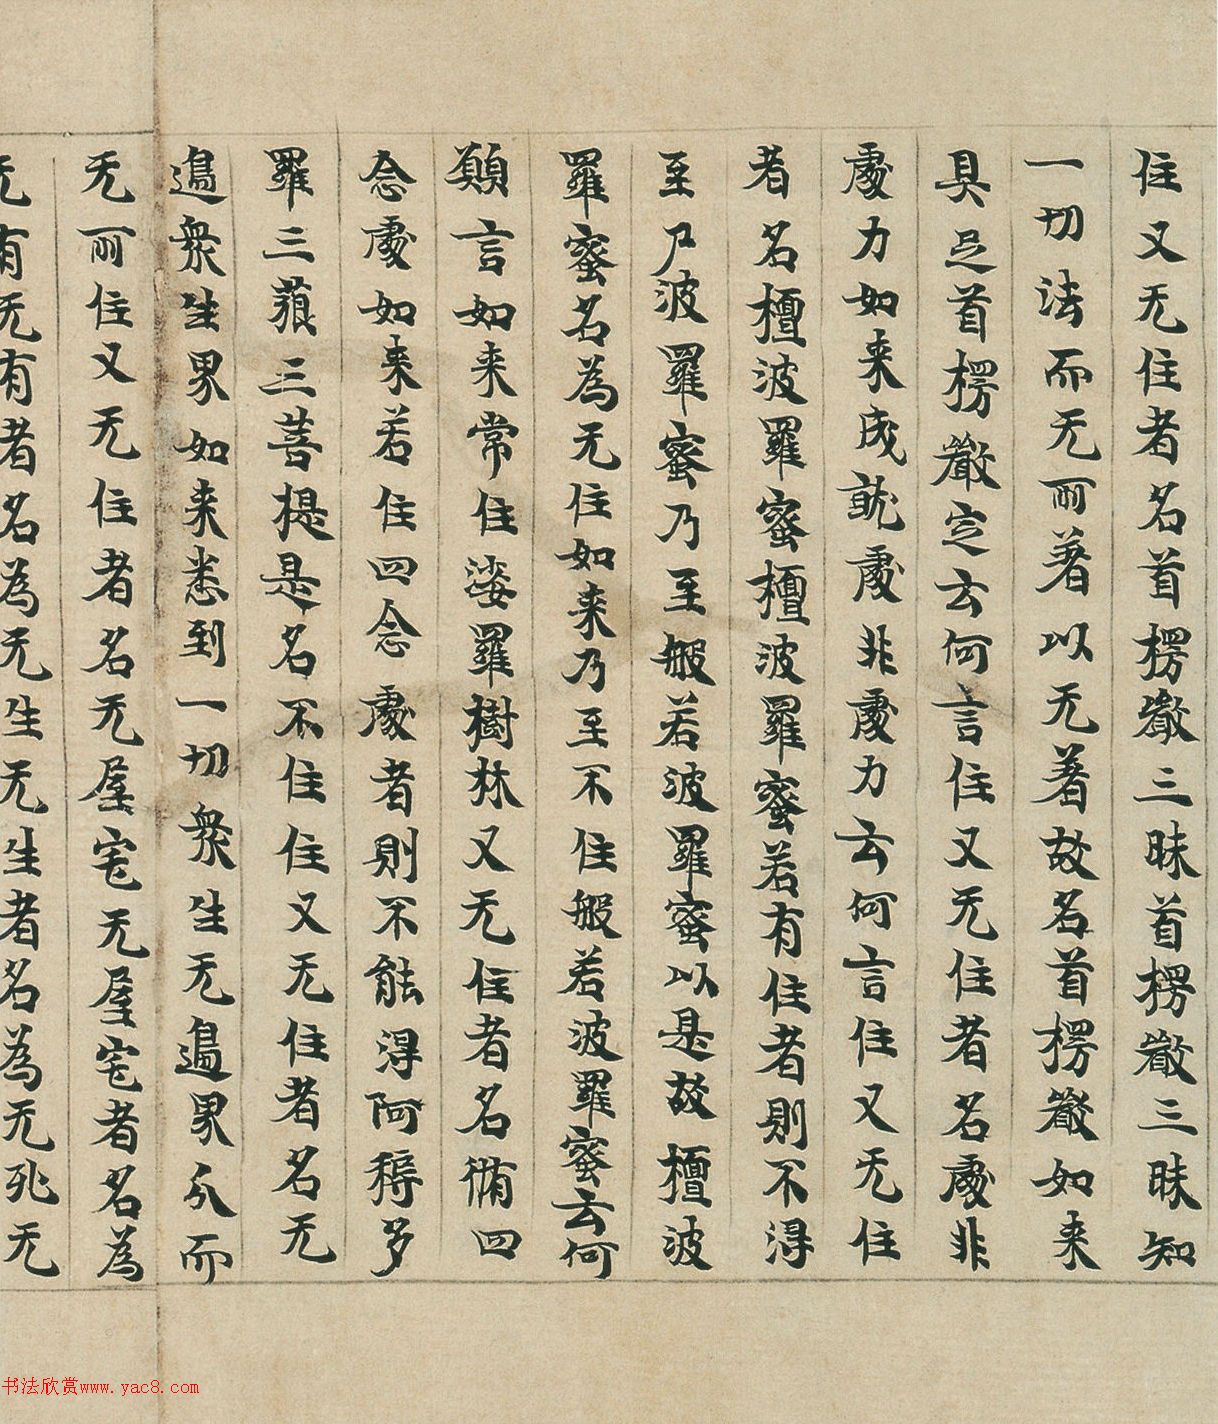 住又无住者名首楞嚴三昧首楞嚴三昧知
一切法而无所著以无著故名首楞嚴如来
具足首楞嚴定云何言住又无住者名處非
處力如来成就處非處力云何言住又无住
者名檀波羅蜜檀波羅蜜若有住者則不得
至尸波羅蜜乃至般若波羅蜜以是故檀波
羅蜜名為无住如来乃至不住般若波羅蜜云何
願言如来常住娑羅樹林又无住者名脩四
念處如来若住四念處者則不能得阿耨多
羅三藐三菩提是名不住住又无住者名无
邊衆生界如来悉到一切衆生无邊界分而
无所住又无住者名无屋宅无屋宅者名為
无有无有者名為无生无生者名為无死无
书法欣赏www.yac8.com